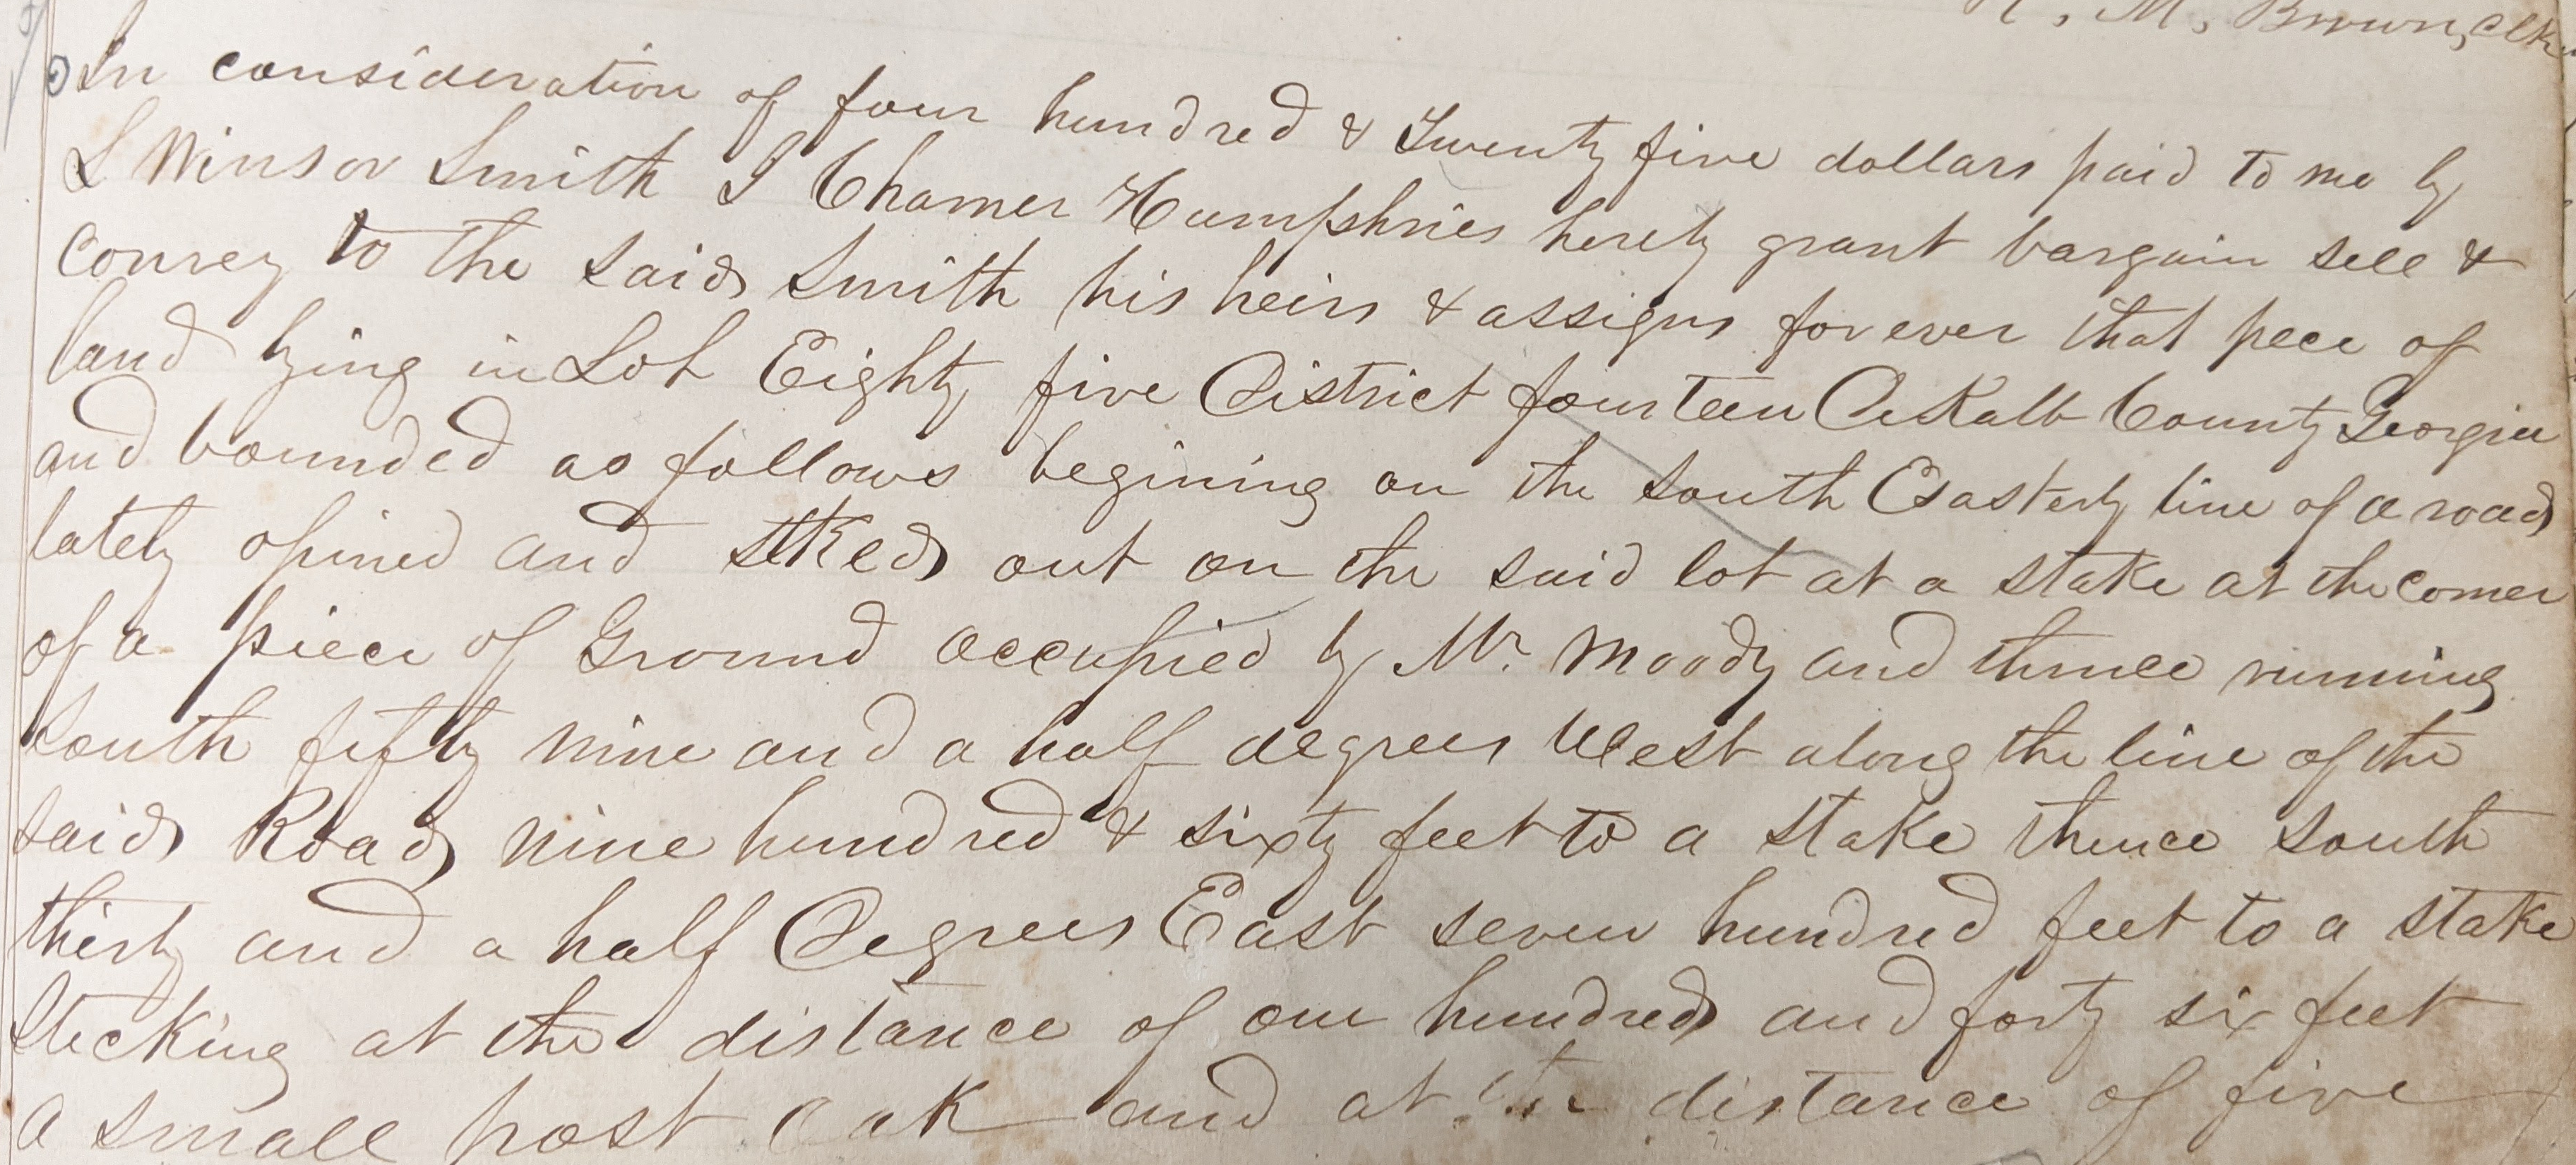 M. Brown, clk
In consideration of four hundred & Twenty five dollars paid to me by
L Winsor Smith I Chamer Humphries herety grant bargain sell &
convey to the said Smith his heirs & assigns for ever that pece of
land lying in Lot Eighty five District fourteen DeKalb County Georgia
and bounded as follows begining on the South Easterly line of a road
lately opined and stked out on the said lot at a stake at the corner
of a piece of Ground occupied by Mr. Moody and thence running
South fifty nine and a half degrees West along the line of the
said Road nine hundred & sixty feet to a stake thence South
thirty and a half Degrees East seven hundred feet to a stake
Stecking at the distance of one hundred and forty six feet
a small post oak and at the distance of five